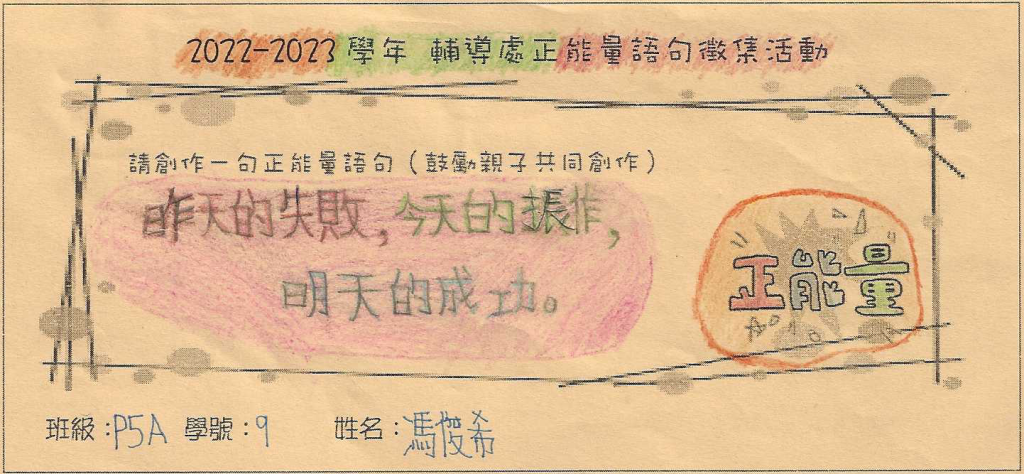 2022-2023 學年 輔導處正能量語句徵集活動
請創作一句正能量語句（鼓勵親子共同創作）
昨天的失敗，今天的振作，
明天的成功。
正能量
班級：P5A 學號：9 姓名：馮俊希